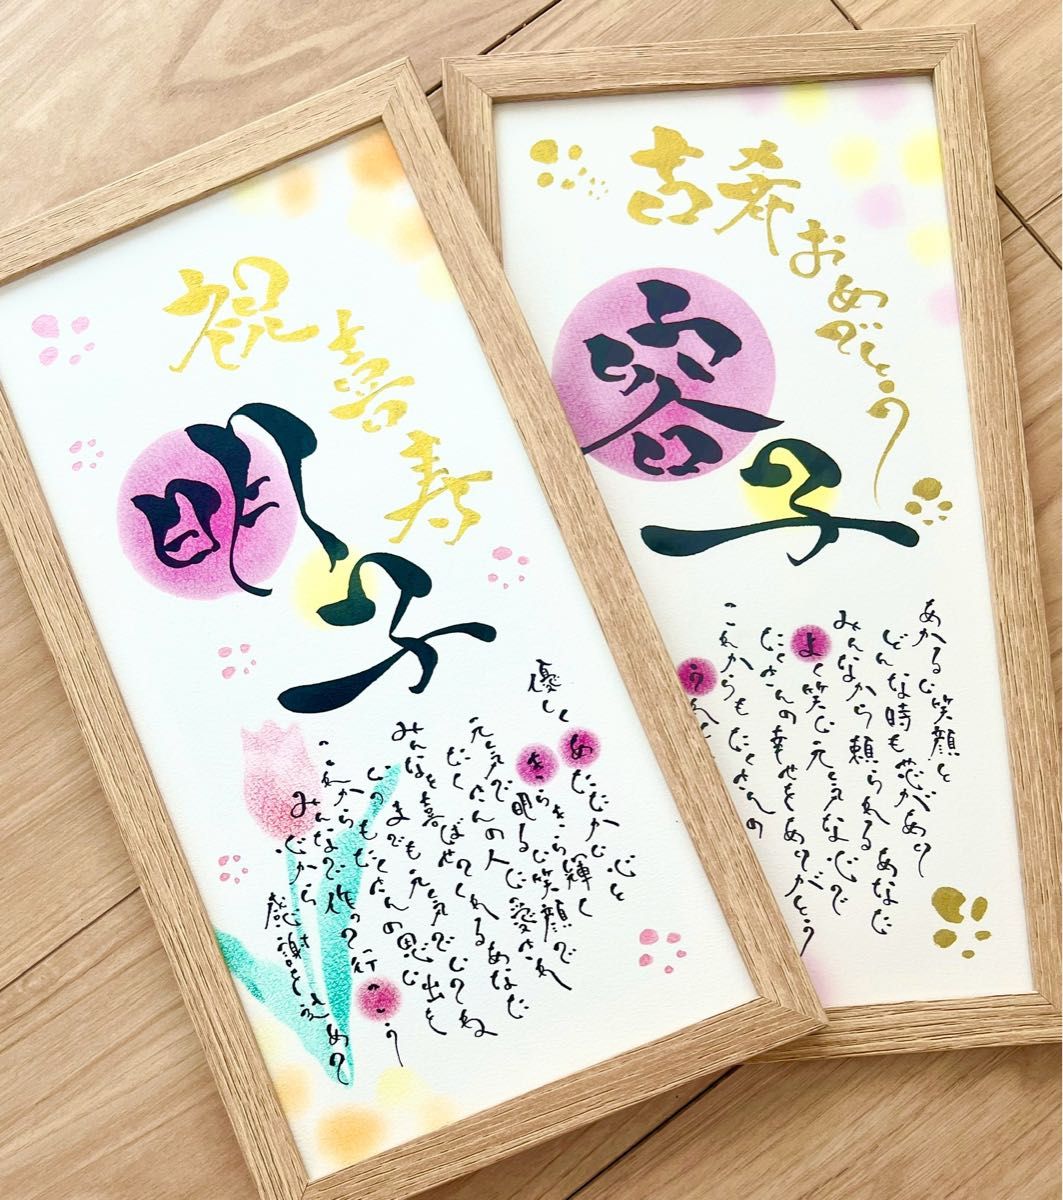 祝喜寿
明子
優しくあたたかい心と
きらきら輝く
明るい笑顔で
元気で
たくさんの人に愛され
みんなを喜ばせてくれるあなた
いつまでも元気でいてね
これからもたくさんの思い出を
みんなで作って行こう
心から感謝をこめて
古希おめでとう
容子
あかるい笑顔と
どんな時も芯があって
みんなから頼られるあなた
よく笑い元気な心で
たくさんの幸せをありがとう
これからもたくさんの
うれ